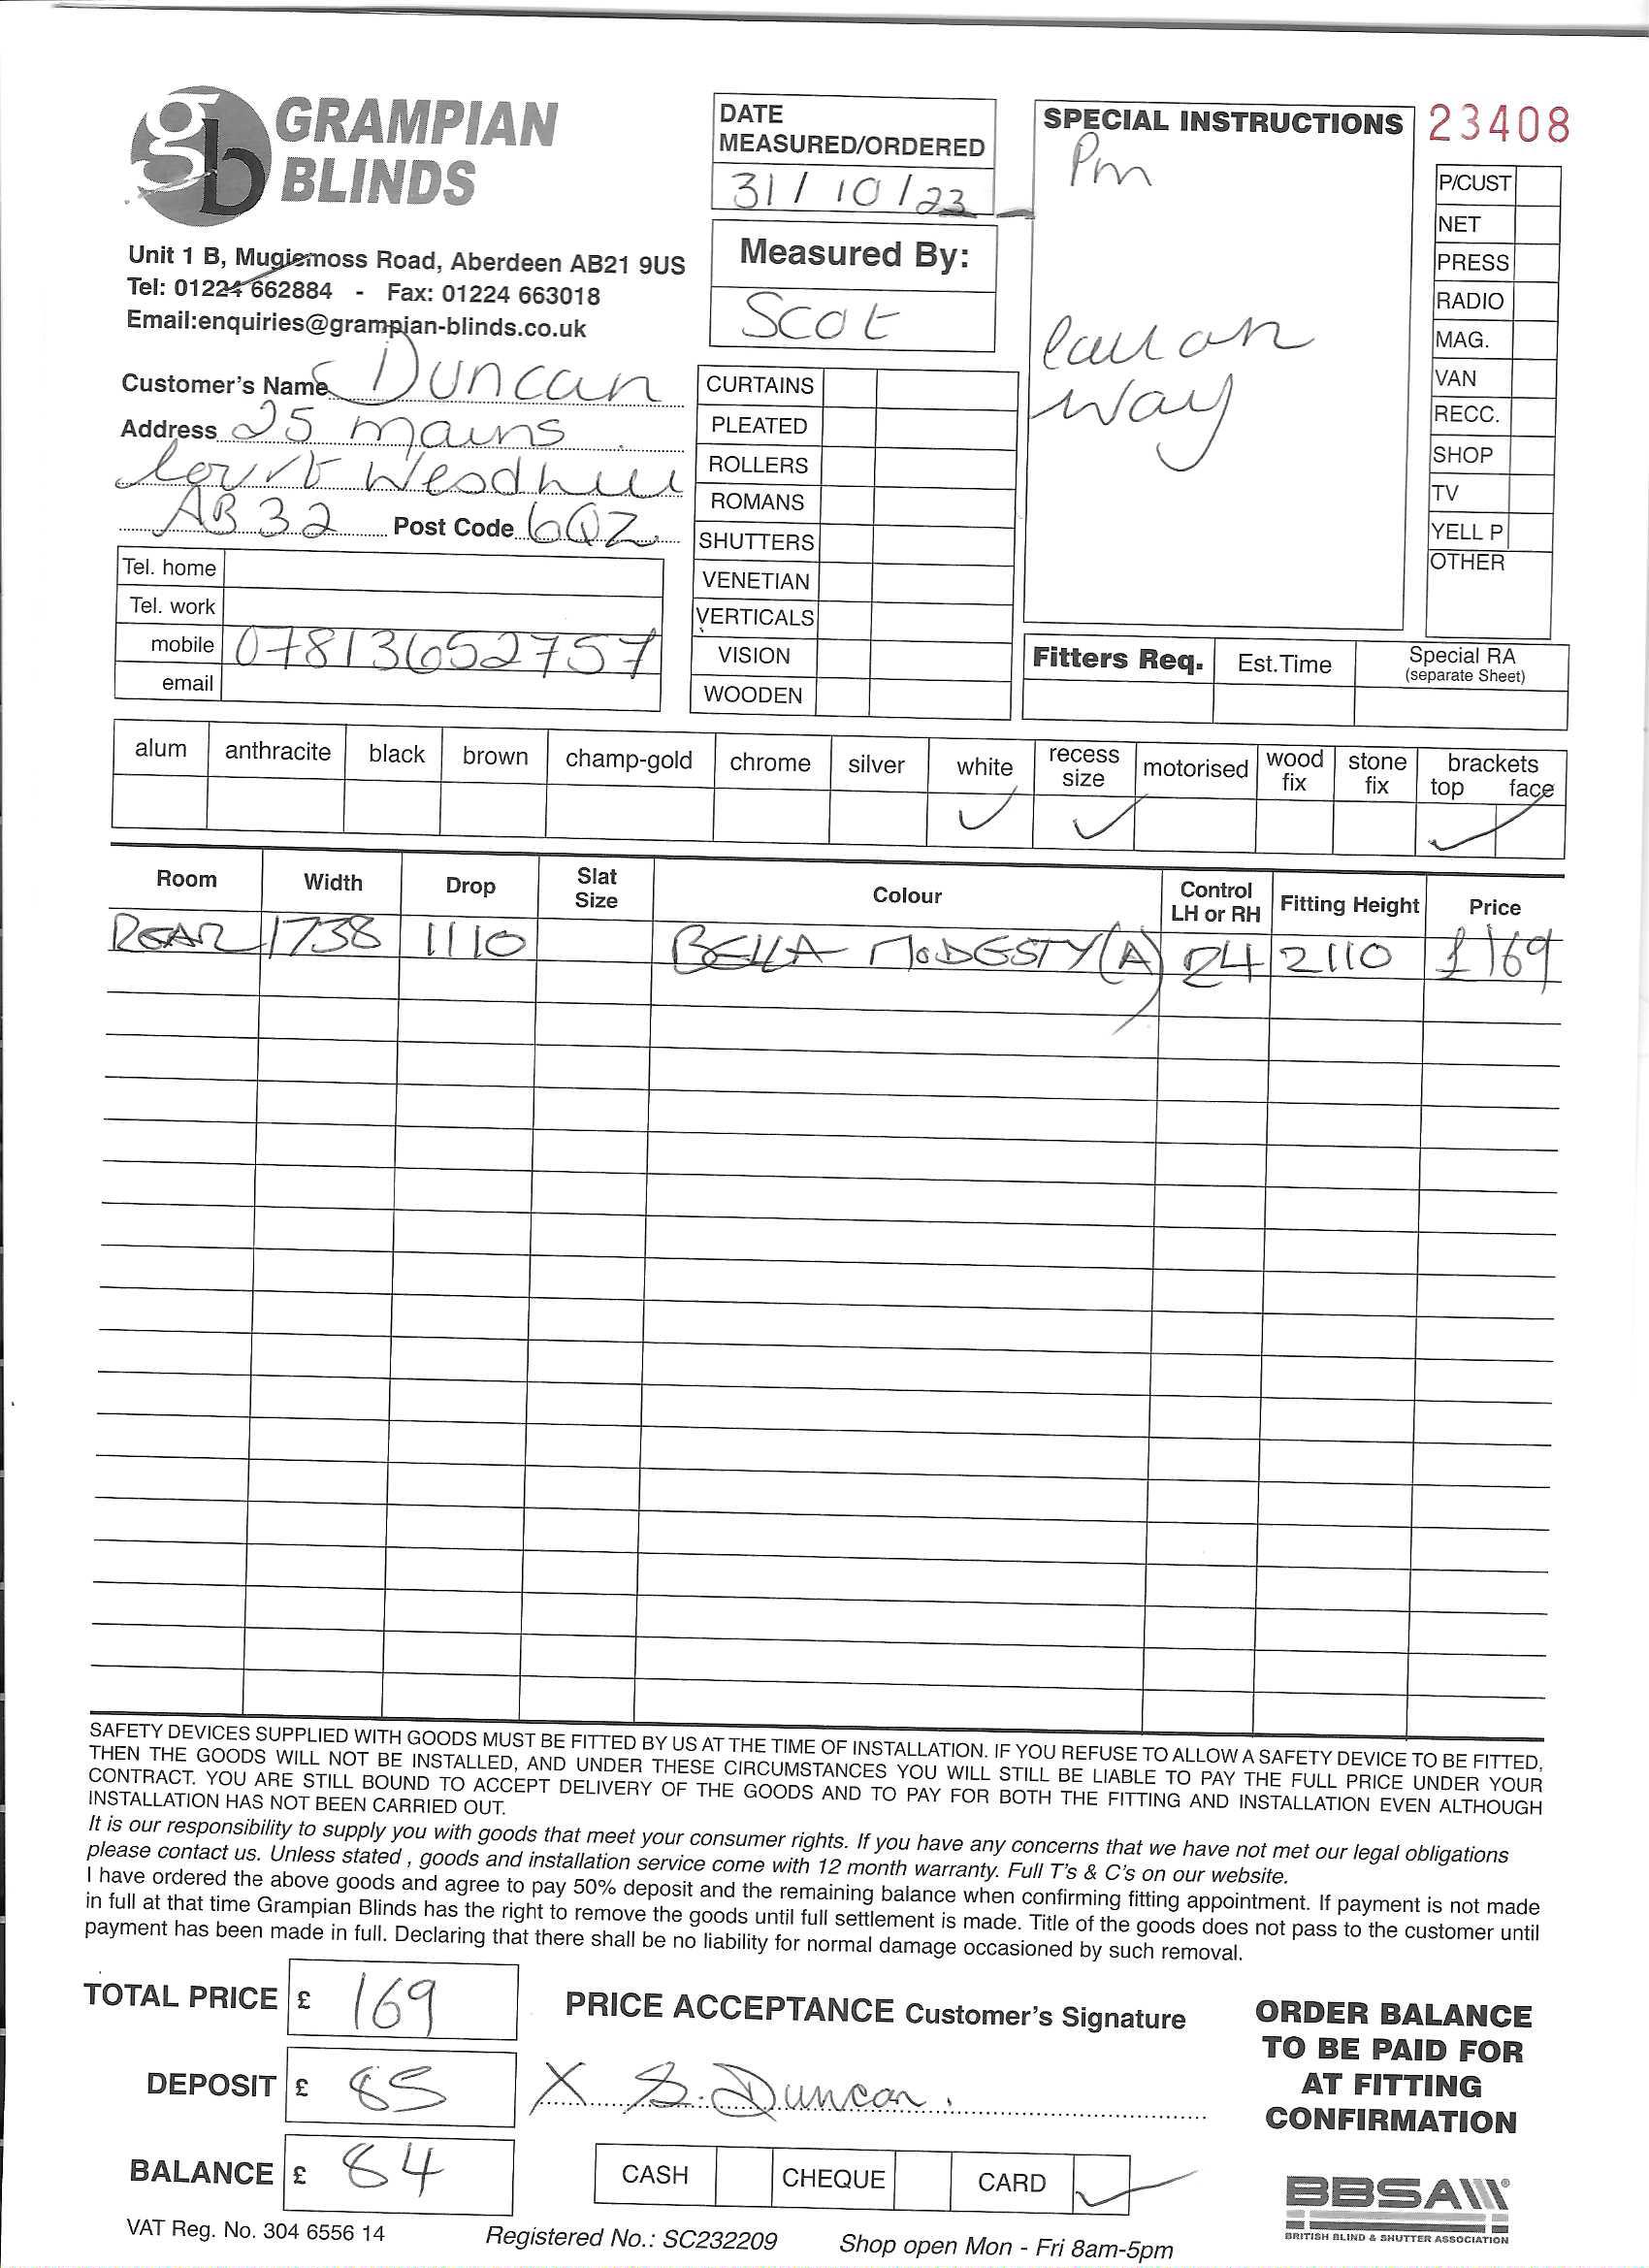 GRAMPIAN
BLINDS
Unit 1 B, Mugiemoss Road, Aberdeen AB21 9US
Tel: 01224 662884 - Fax: 01224 663018
Email:enquiries@grampian-blinds.co.uk
DATE
MEASURED/ORDERED
31 / 10 / 23
Measured By:
Scot
SPECIAL INSTRUCTIONS
Pm
Call on
Way
23408
P/CUST
NET
PRESS
RADIO
MAG.
VAN
RECC.
SHOP
TV
YELL P
OTHER
Customer's Name Duncan
Address 25 Mains
Court Westhill
AB32 Post Code 6QZ
Tel. home
Tel. work
mobile 07813652757
email
CURTAINS
PLEATED
ROLLERS
ROMANS
SHUTTERS
VENETIAN
VERTICALS
VISION
WOODEN
Fitters Req. Est.Time Special RA
(separate Sheet)
alum anthracite black brown champ-gold chrome silver white recess size motorised wood fix stone fix brackets top face
Room Width Drop Slat Size Colour Control LH or RH Fitting Height Price
REAR 1738 1110 BELLA MODESTY (A) 2110 £169
SAFETY DEVICES SUPPLIED WITH GOODS MUST BE FITTED BY US AT THE TIME OF INSTALLATION. IF YOU REFUSE TO ALLOW A SAFETY DEVICE TO BE FITTED,
THEN THE GOODS WILL NOT BE INSTALLED, AND UNDER THESE CIRCUMSTANCES YOU WILL STILL BE LIABLE TO PAY THE FULL PRICE UNDER YOUR
CONTRACT. YOU ARE STILL BOUND TO ACCEPT DELIVERY OF THE GOODS AND TO PAY FOR BOTH THE FITTING AND INSTALLATION EVEN ALTHOUGH
INSTALLATION HAS NOT BEEN CARRIED OUT.
It is our responsibility to supply you with goods that meet your consumer rights. If you have any concerns that we have not met our legal obligations
please contact us. Unless stated , goods and installation service come with 12 month warranty. Full T's & C's on our website.
I have ordered the above goods and agree to pay 50% deposit and the remaining balance when confirming fitting appointment. If payment is not made
in full at that time Grampian Blinds has the right to remove the goods until full settlement is made. Title of the goods does not pass to the customer until
payment has been made in full. Declaring that there shall be no liability for normal damage occasioned by such removal.
TOTAL PRICE £ 169
DEPOSIT £ 85
BALANCE £ 84
PRICE ACCEPTANCE Customer's Signature
X S. Duncan.
CASH CHEQUE CARD
ORDER BALANCE
TO BE PAID FOR
AT FITTING
CONFIRMATION
BBSA
BRITISH BLIND & SHUTTER ASSOCIATION
VAT Reg. No. 304 6556 14
Registered No.: SC232209
Shop open Mon - Fri 8am-5pm